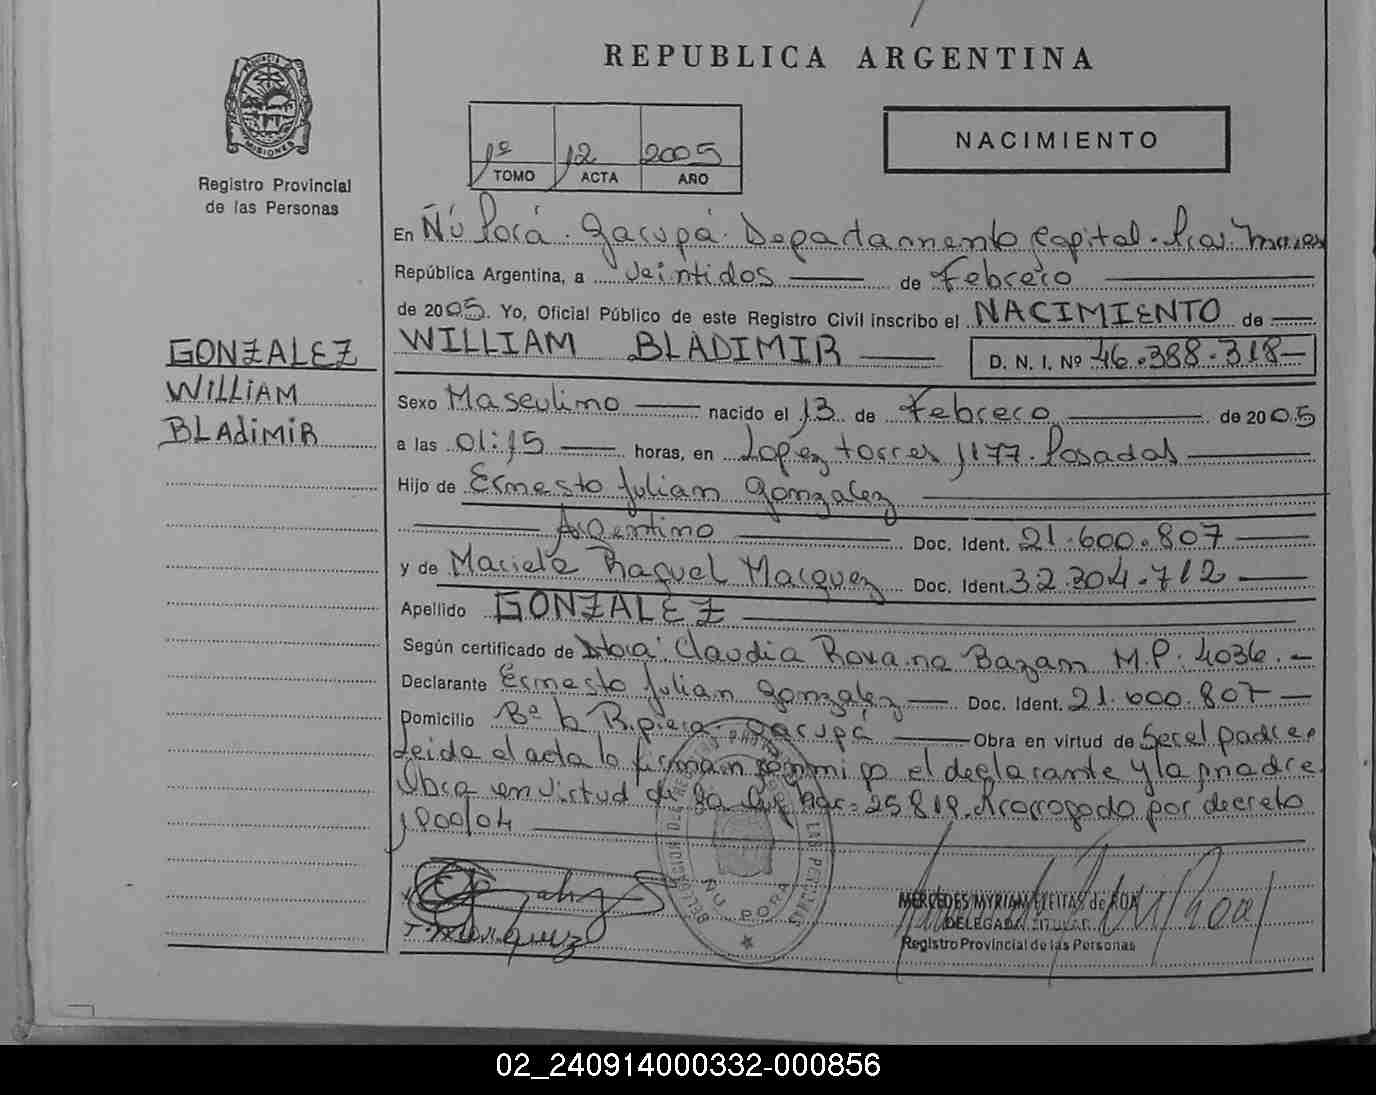 REPUBLICA ARGENTINA
PROVINCIA DE
MISIONES
Registro Provincial
de las Personas
1º 12 2005
TOMO ACTA AÑO
NACIMIENTO
En Ñú Porá. Garupá. Departamento Capital.
República Argentina, a veintidos de Febrero
de 2005. Yo, Oficial Público de este Registro Civil inscribo el NACIMIENTO de
WILLIAM BLADIMIR D. N. I. Nº 46.388.318
GONZALEZ
WILLIAM
BLADIMIR
Sexo Masculino nacido el 13 de Febrero de 2005
a las 01:15 horas, en Lopez torres 1177. Posadas
Hijo de Ernesto Julian Gonzalez
Argentino Doc. Ident. 21.600.807
y de Mariela Raquel Marquez Doc. Ident. 32.304.712
Apellido GONZALEZ
Según certificado de Dtora: Claudia Roxana Bazan M.P. 4036.
Declarante Ernesto Julian Gonzalez Doc. Ident. 21.600.807
Domicilio Bº la Ripiera Garupá Obra en virtud de Ser el padre
Leida el acta lo firman conmigo el declarante y la madre.
Obra en virtud de la Ley Nac: 25819. Prorrogado por decreto
1800/04
DELEGACION DEL REGISTRO PROVINCIAL DE LAS PERSONAS
ÑU PORA
MERCEDES MYRIAM FLEITAS de ROA
DELEGADA TITULAR
Registro Provincial de las Personas
T. Marquez
02_240914000332-000856